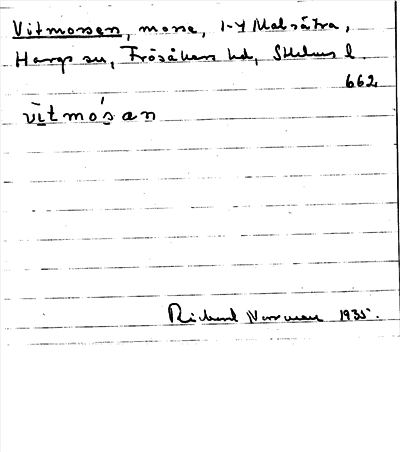 Vitmossen, mosse, 1-4 Malsätra,
Hargs sn, Frösåkers hd, Sthlms l.
662
vìtmo´san
Richard 1935.